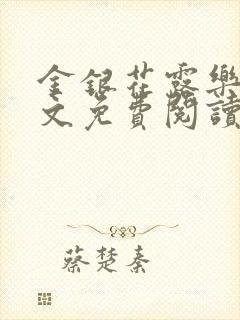 金銀花露樂
文免費閱讀
蔡楚秦